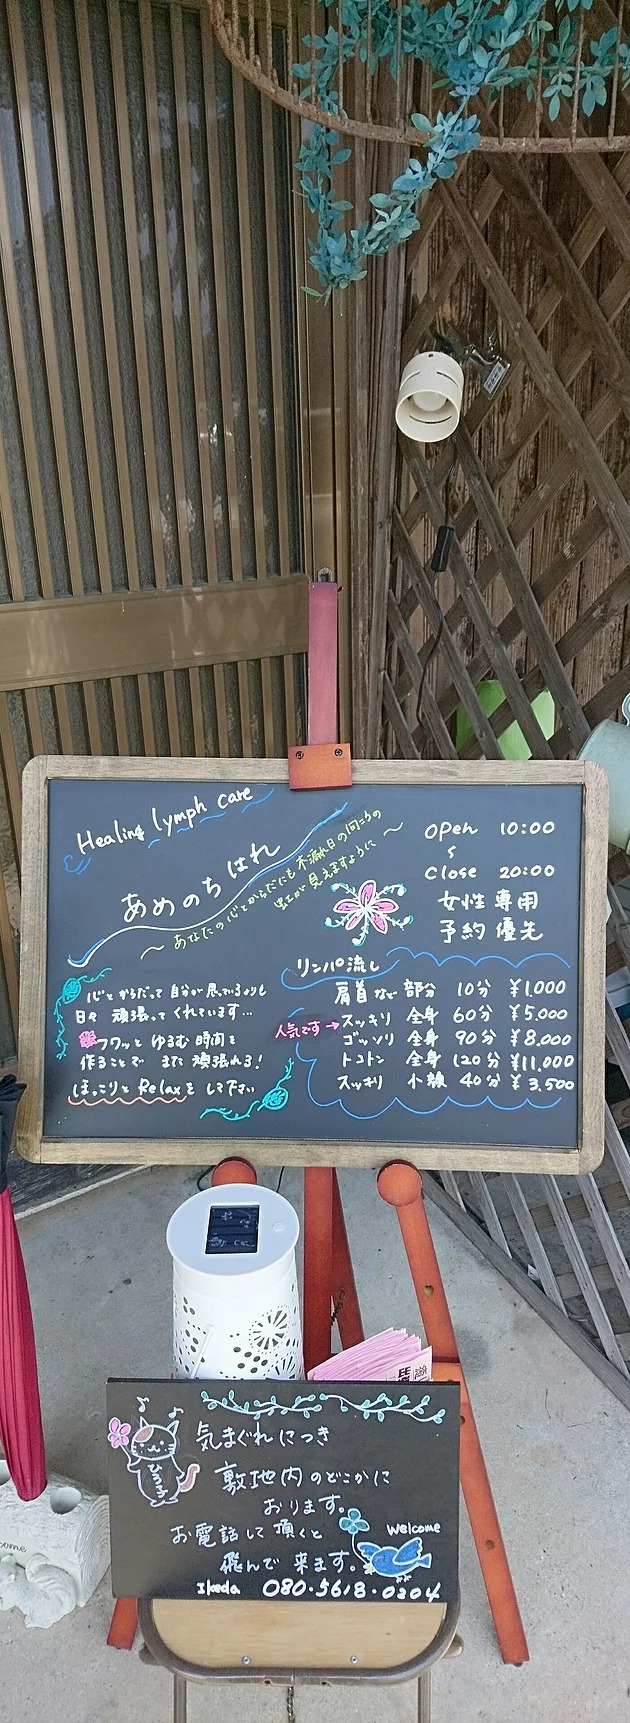 Healing lymph care
あめのちはれ
〜 あなたの心とからだにも木漏れ日の向こうの
虹が見えますように 〜
open 10:00
〜
close 20:00
女性専用
予約優先
心とからだって自分が思っているよりも
日々 頑張ってくれています...
フワッとゆるむ時間を
作ることで また頑張れる!
ほっこりとRelaxをして下さい
リンパ流し
肩首など 部分 10分 ¥1,000
人気です→スッキリ 全身 60分 ¥5,000
ゴッソリ 全身 90分 ¥8,000
トコトン 全身 120分 ¥11,000
スッキリ 小顔 40分 ¥3,500
気まぐれにつき
敷地内のどこかに
おります。
お電話して頂くと
飛んで来ます。
welcome
Ikeda 080・5618・0304
ひろ子
come